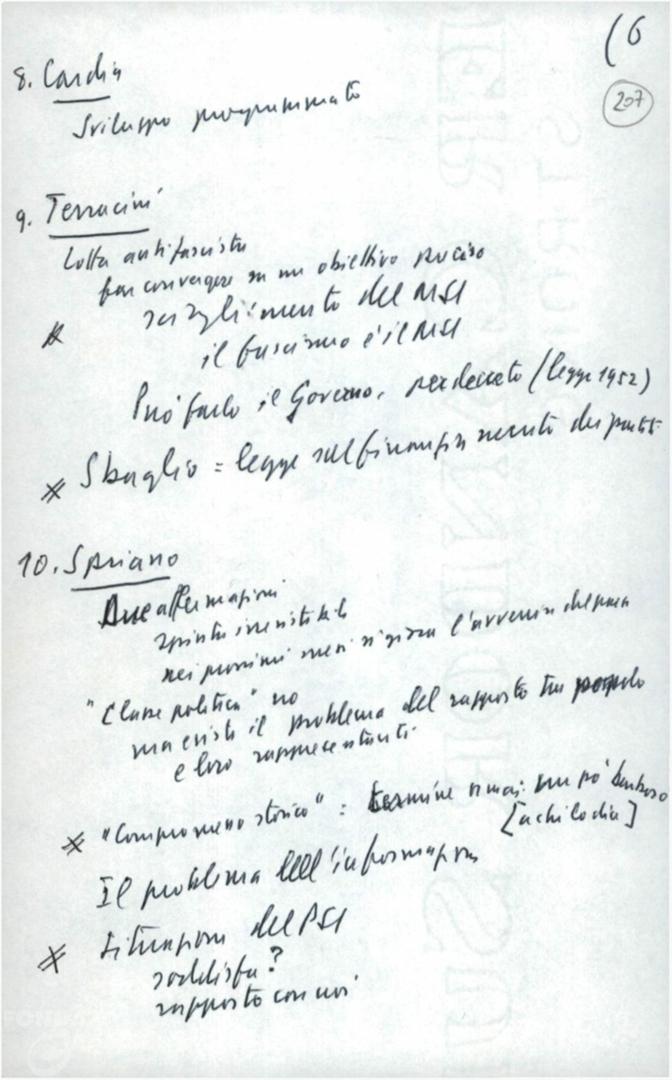 (6
207
8. Cardia
Sviluppo programmato
9. Terracini
Lotta antifascista
far convergere su un obiettivo preciso
scioglimento del MSI
il fascismo è il MSI
Può farlo il Governo, per decreto (legge 1952)
* Sbaglio = legge sul finanziamento dei partiti
10. Spriano
Due affermazioni
spinta irresistibile
nei prossimi mesi si gioca l'avvenire del paese
"Classe politica" no
ma esiste il problema del rapporto tra popolo
e loro rappresentanti
* "Compromesso storico" = termine ormai un po' barboso
[a chi lo dia]
Il problema dell'informazione
* Situazione del PSI
soddisfa?
rapporto con noi